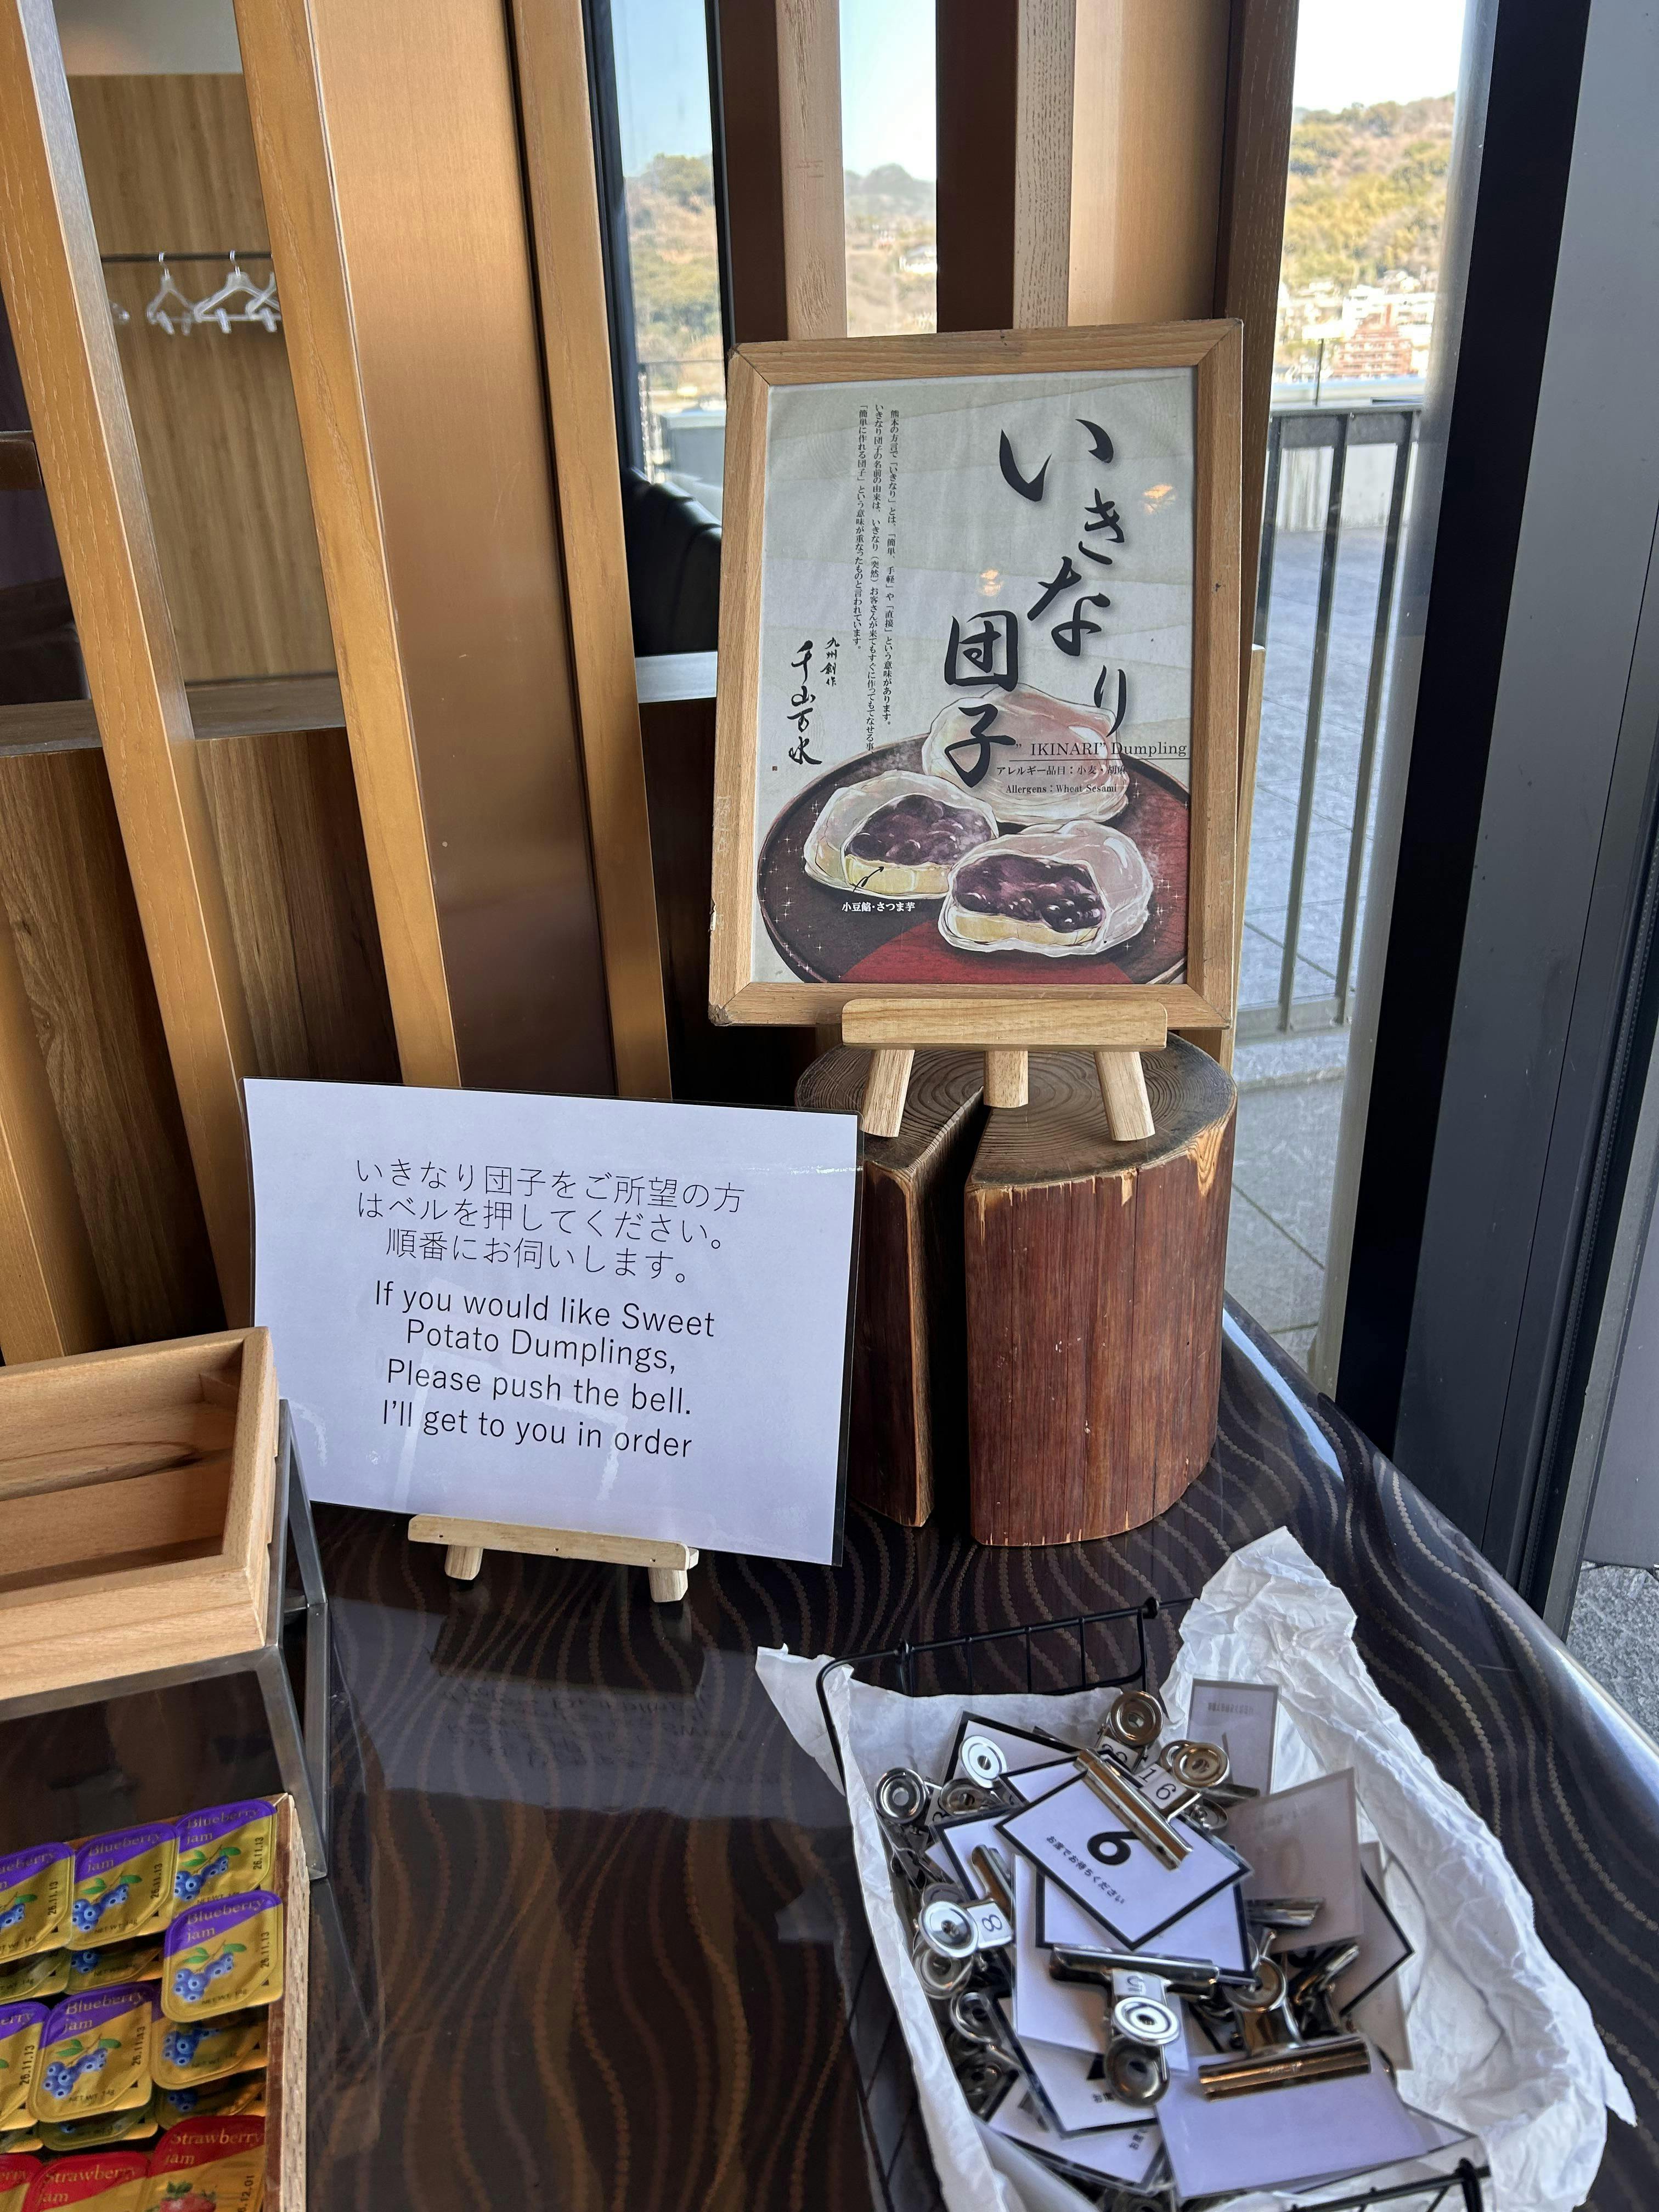 いきなり
団子
熊本の方言で「いきなり」とは、「簡単、手軽」や「直接」という意味があります。
いきなり団子の名前の由来は、いきなり（突然）お客さんが来てもすぐに作ってもてなせる事、
「簡単に作れる団子」という意味が重なったものと言われています。
九州創作
千山万水
" IKINARI" Dumpling
アレルギー品目：小麦・胡麻
Allergens：Wheat Sesami
小豆餡・さつま芋
いきなり団子をご所望の方
はベルを押してください。
順番にお伺いします。
If you would like Sweet
Potato Dumplings,
Please push the bell.
I'll get to you in order
16
6
お席でお待ちください
8
5
Blueberry
jam
26.11.13
Blueberry
jam
26.11.13
Blueberry
jam
26.11.13
NET WT. 14g
Blueberry
jam
26.11.13
NET WT. 14g
Strawberry
jam
Strawberry
jam